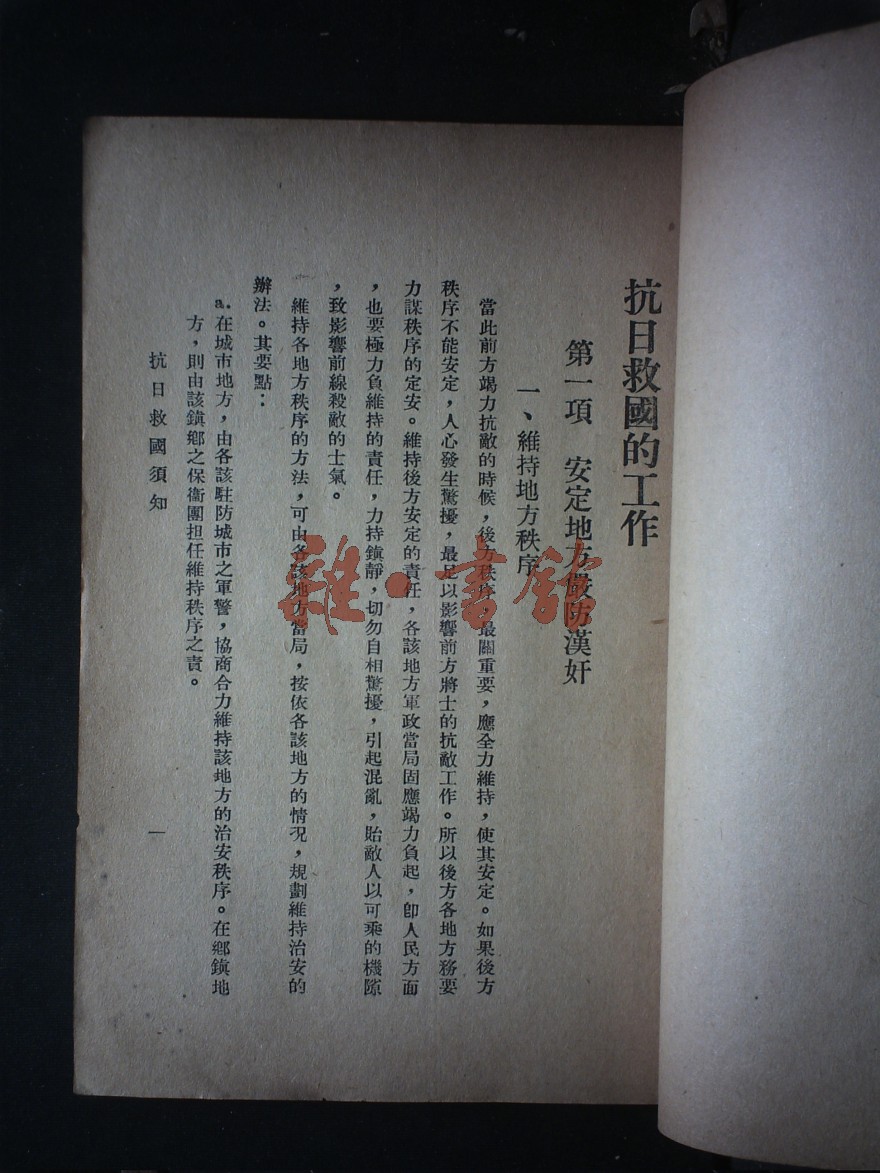 抗日救國的工作
第一項　安定地方嚴防漢奸
一、維持地方秩序
當此前方竭力抗敵的時候，後方秩序，最關重要，應全力維持，使其安定。如果後方
秩序不能安定，人心發生驚擾，最足以影響前方將士的抗敵工作。所以後方各地方務要
力謀秩序的定安。維持後方安定的責任，各該地方軍政當局固應竭力負起，卽人民方面
，也要極力負維持的責任，力持鎮靜，切勿自相驚擾，引起混亂，貽敵人以可乘的機隙
，致影響前線殺敵的士氣。
維持各地方秩序的方法，可由各該地方當局，按依各該地方的情况，規劃維持治安的
辦法。其要點：
a. 在城市地方，由各該駐防城市之軍警，協商合力維持該地方的治安秩序。在鄉鎮地
方，則由該鎮鄉之保衞團担任維持秩序之責。
抗日救國須知
一
雜·書館